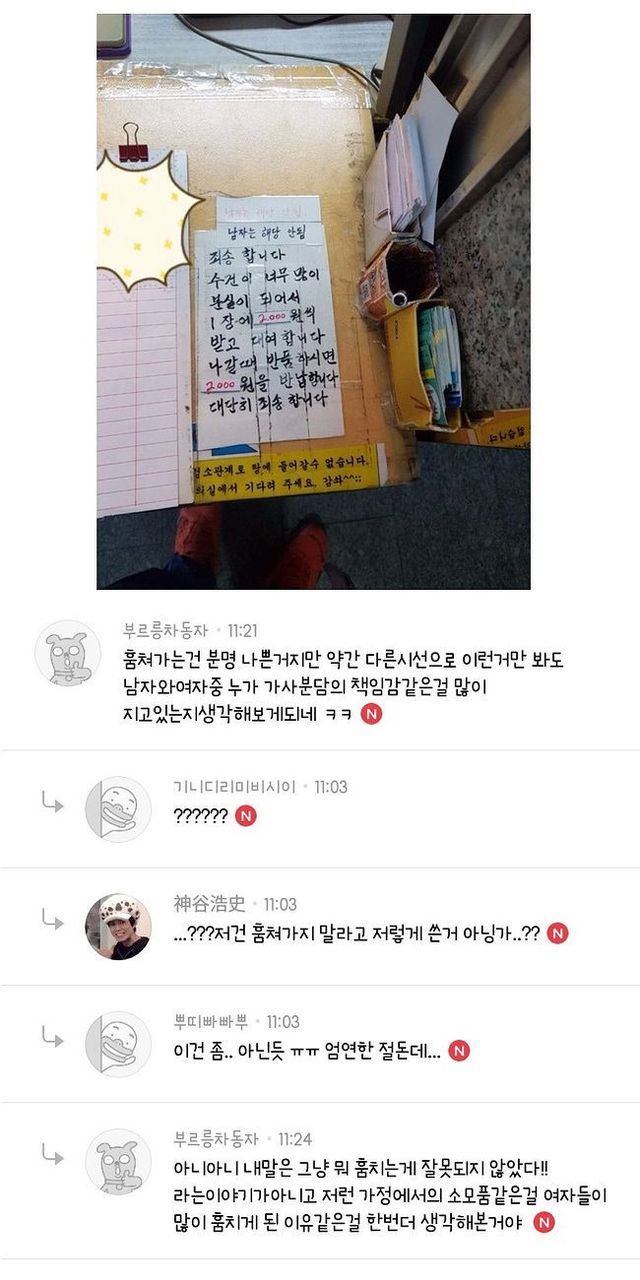 남자는 해당 안됨
남자는 해당 안됨
죄송 합니다
수건이 너무 많이
분실이 되어서
1장에 2.000원씩
받고 대여 합니다
나갈때 반품하시면
2000원을 반납합니다
대단히 죄송합니다
검소관계로 탕에 들어갈수 없습니다.
의실에서 기다려 주세요. 감솨^^;;
없습니다
부르릉차동자 • 11:21
훔쳐가는건 분명 나쁜거지만 약간 다른시선으로 이런거만 봐도
남자와여자중 누가 가사분담의 책임감같은걸 많이
지고있는지생각해보게되네 ㅋㅋ N
기니디리미비시이 • 11:03
?????? N
神谷浩史 • 11:03
...???저건 훔쳐가지 말라고 저렇게 쓴거 아닝가..?? N
뿌띠빠빠뿌 • 11:03
이건 좀.. 아닌듯 ㅠㅠ 엄연한 절돈데... N
부르릉차동자 • 11:24
아니아니 내말은 그냥 뭐 훔치는게 잘못되지 않았다!!
라는이야기가아니고 저런 가정에서의 소모품같은걸 여자들이
많이 훔치게 된 이유같은걸 한번더 생각해본거야 N